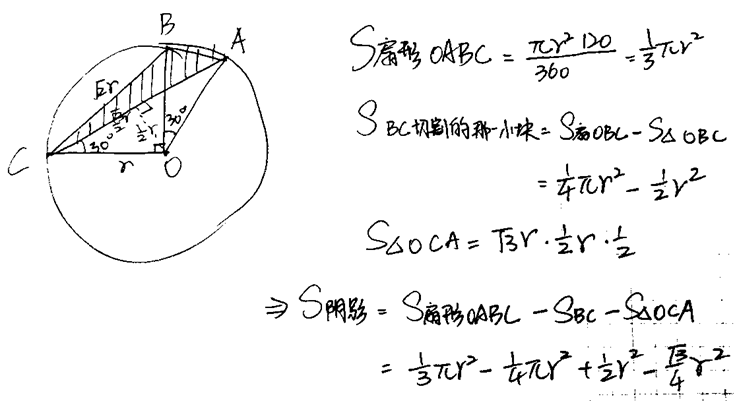 B
A
√2r
√3/2 r
1/2 r
30°
30°
C
r
O
S扇形OABC = πr² 120/360 = 1/3 πr²
S BC切割的那一小块 = S扇OBC - S△OBC
= 1/4 πr² - 1/2 r²
S△OCA = √3r · 1/2 r · 1/2
⇒ S阴影 = S扇形OABC - S BC - S△OCA
= 1/3 πr² - 1/4 πr² + 1/2 r² - √3/4 r²